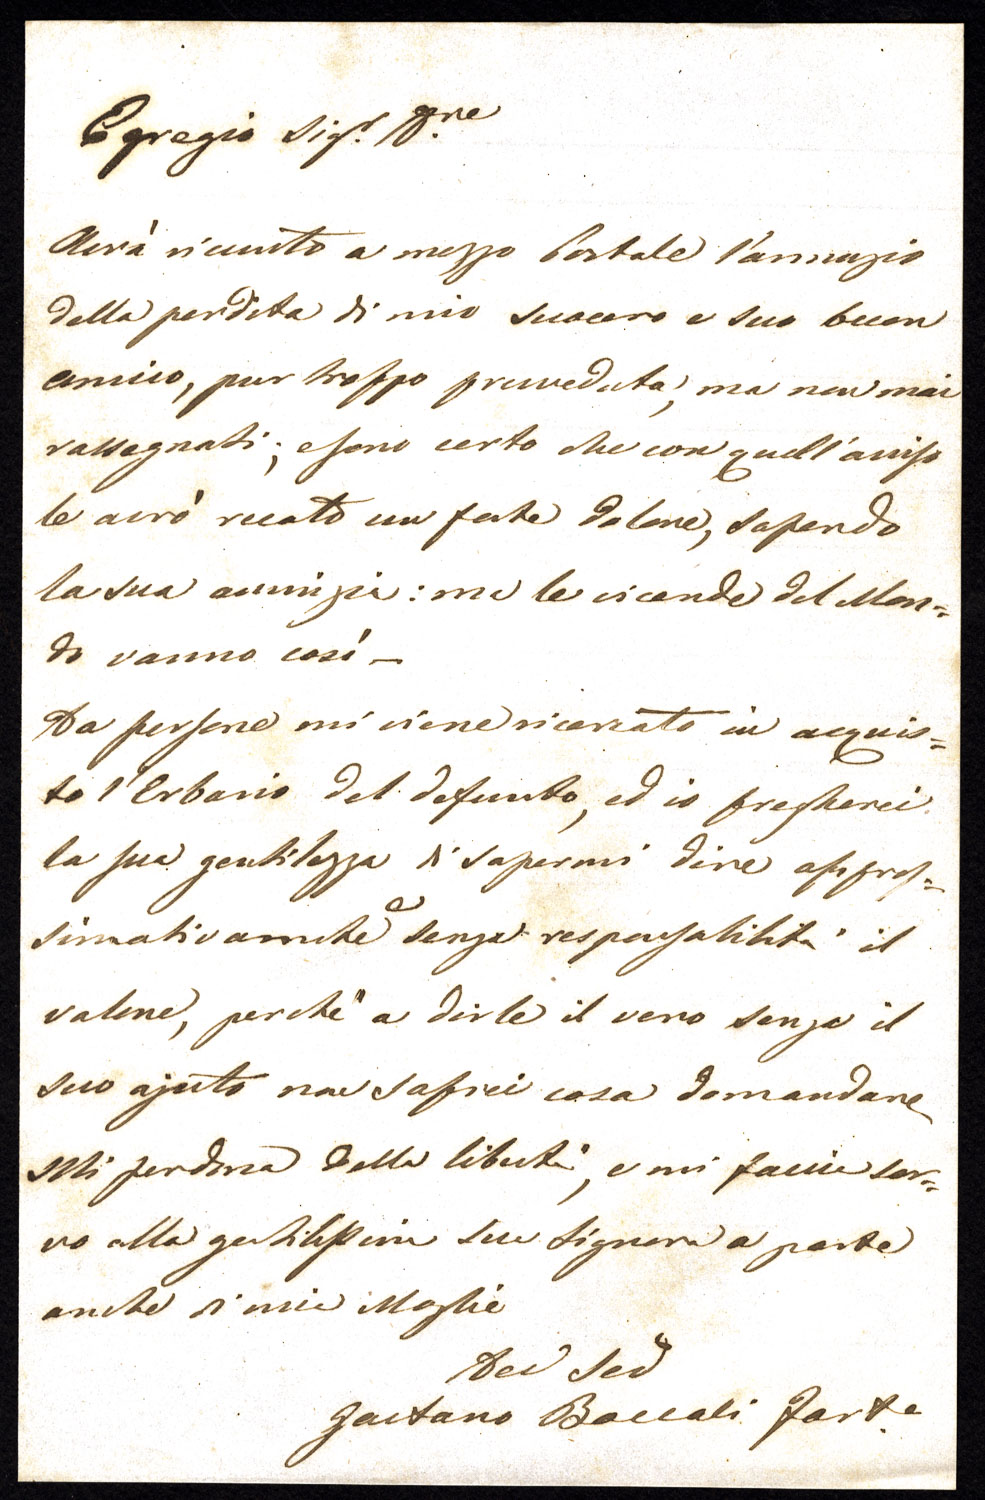 Egregio Sigr. Pre
Avrà ricevuto a mezzo Postale l'annuzio
della perdita di mio suocero e suo buon
amico, pur troppo preveduta, ma non mai
rassegnati; e sono certo che con quell'aviso
le avrò recato un forte dolore, sapendo
la sua amicizia: ma le vicende del Mon=
do vanno così —
Da persone mi viene ricercato in acquis=
to l'Erbario del defunto, ed io pregherei
la sua gentilezza di sapermi dire appros=
simativamente e senza responsabilità il
valore, perchè a dirle il vero senza il
suo ajuto non saprei cosa domandare
Mi perdona della libertà, e mi faccia ser=
vo alla gentilissima sua Signora a parte
anche di mia Moglie
Gaetano Baccali